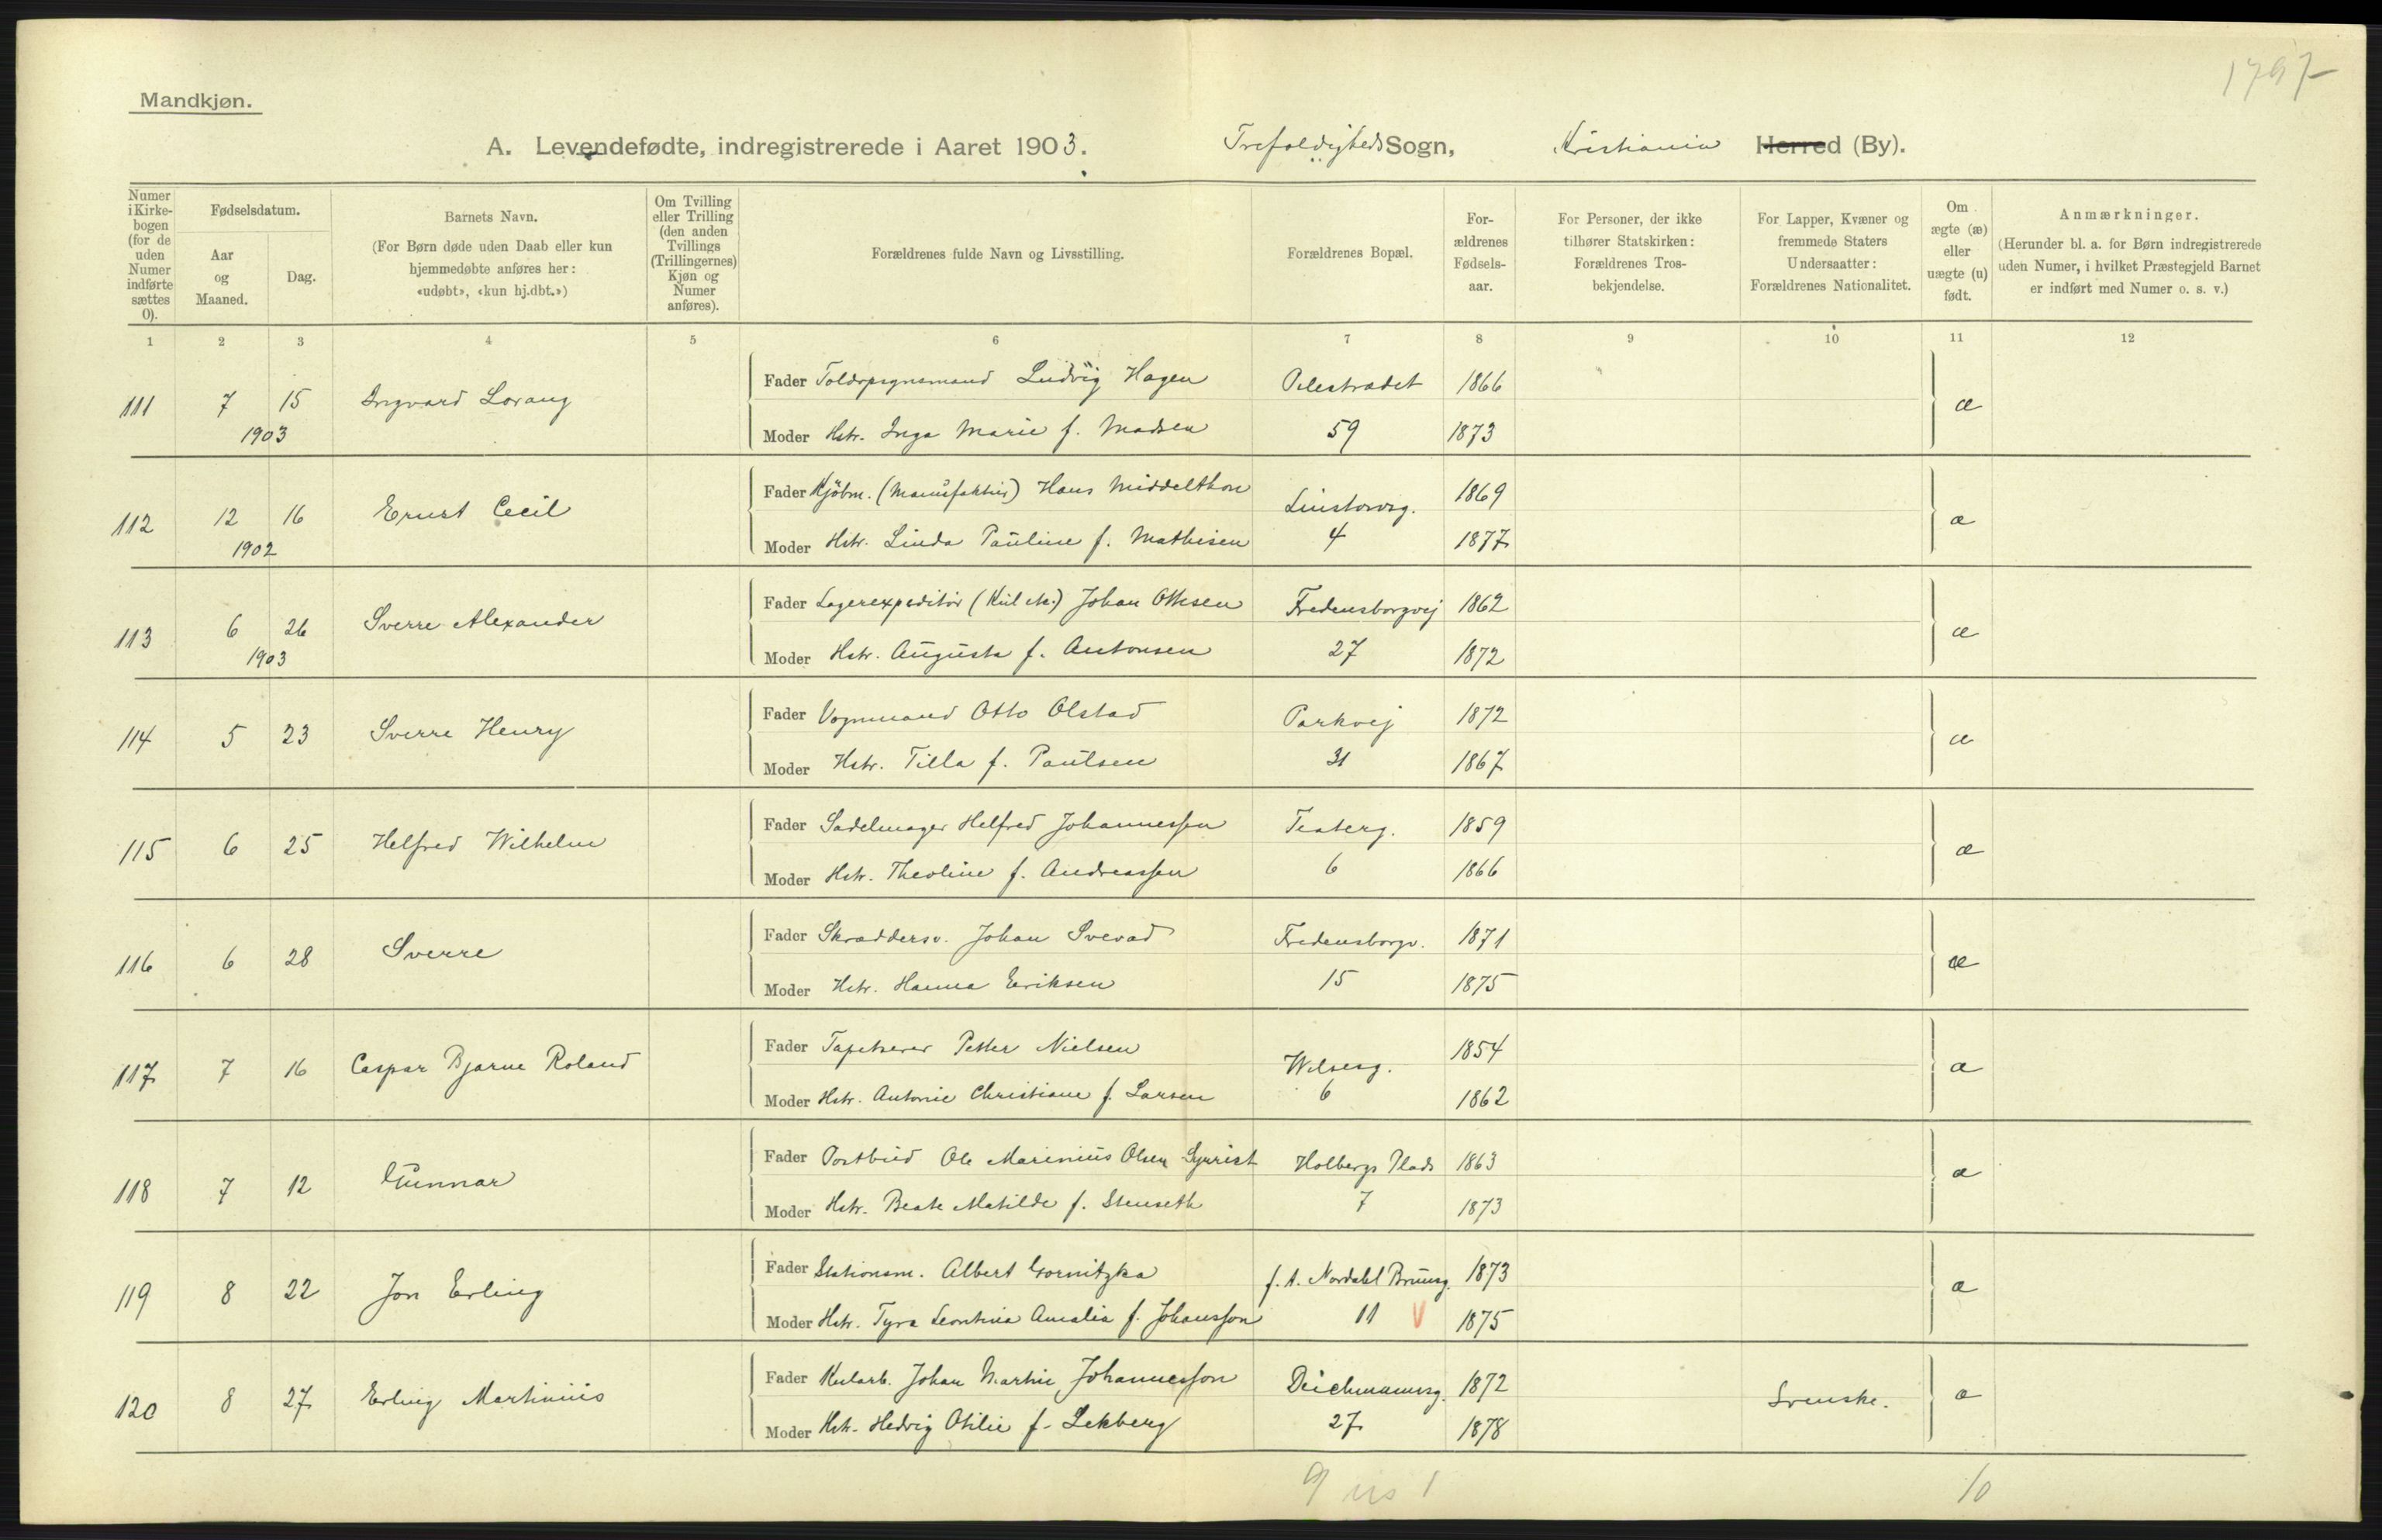 1797
Mandkjøn.
A. Levendefødte, indregistrerede i Aaret 1903. Trefoldigheds Sogn, Kristiania Herred (By).
Numer i Kirkebogen (for de uden Numer indførte sættes 0).
Fødselsdatum.
Aar og Maaned.
Dag.
Barnets Navn.
(For Børn døde uden Daab eller kun hjemmedøbte anføres her: «udøbt», «kun hj.dbt.»)
Om Tvilling eller Trilling (den anden Tvillings (Trillingernes) Kjøn og Numer anføres).
Forældrenes fulde Navn og Livsstilling.
Forældrenes Bopæl.
Forældrenes Fødselsaar.
For Personer, der ikke tilhører Statskirken: Forældrenes Trosbekjendelse.
For Lapper, Kvæner og fremmede Staters Undersaatter: Forældrenes Nationalitet.
Om ægte (æ) eller uægte (u) født.
Anmærkninger.
(Herunder bl. a. for Børn indregistrerede uden Numer, i hvilket Præstegjeld Barnet er indført med Numer o. s. v.)
1 2 3 4 5 6 7 8 9 10 11 12
111 7 15 Ingvard Lorang Fader Toldopsynsmand Ludvig Hagen Pilestrædet 1866 æ
1903 Moder Hstr. Inga Marie f. Madsen 59 1873
112 12 16 Ernst Cecil Fader Kjöbm. (Manufaktur) Hans Middelthon Linstowsg. 1869 æ
1902 Moder Hstr. Linda Pauline f. Mathisen 4 1877
113 6 26 Sverre Alexander Fader Lagerexpeditör (Kul etc.) Johan Ottesen Fredensborgvej 1862 æ
1903 Moder Hstr. Augusta f. Antonsen 27 1872
114 5 23 Sverre Henry Fader Vognmand Otto Olstad Parkvej 1872 æ
Moder Hstr. Tilla f. Paulsen 31 1867
115 6 25 Helfred Wilhelm Fader Sadelmager Helfred Johannessen Teaterg. 1859 æ
Moder Hstr. Theoline f. Andreassen 6 1866
116 6 28 Sverre Fader Skræddersv. Johan Svevad Fredensborgv. 1871 æ
Moder Hstr. Hanna Eriksen 15 1875
117 7 16 Caspar Bjarne Roland Fader Tapetserer Petter Nielsen Wilsesg. 1854 æ
Moder Hstr. Antonie Christiane f. Larsen 6 1862
118 7 12 Gunnar Fader Postbud Ole Marinius Olsen Holbergs Plads 1863 æ
Moder Hstr. Beate Matilde f. Stenseth 7 1873
119 8 22 Jon Erling Fader Stationsm. Albert Gornitzka f. A. Nordahl Brunsg. 1873 æ
Moder Hstr. Tyra Leontina Amalia f. Johansson 11 V 1875
120 8 27 Erling Martinius Fader Kularb. Johan Martin Johannesson Deichmannsg. 1872 Svenske. æ
Moder Hstr. Hedvig Otilie f. Lekberg 27 1878
9 us 1 10